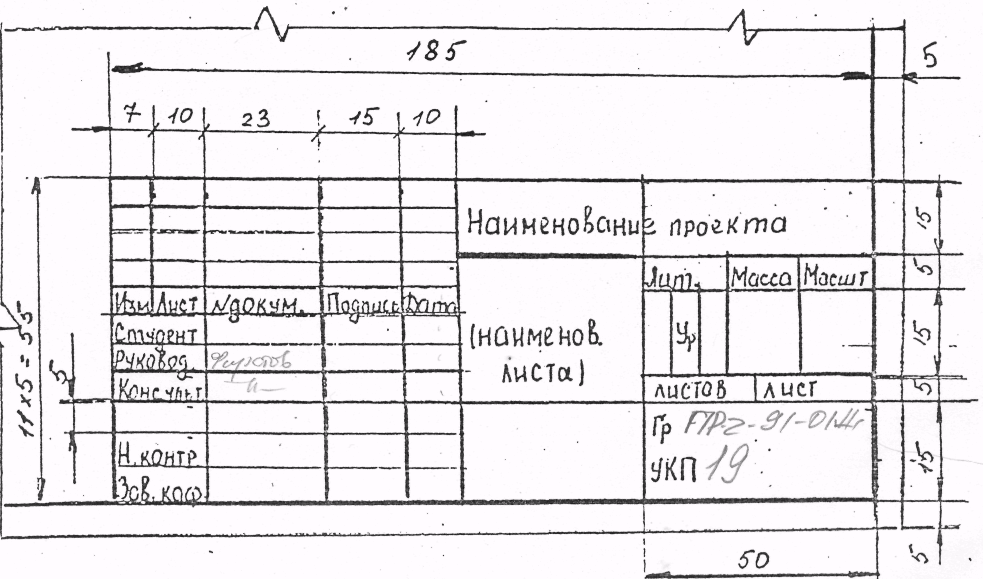 185
5
7 10 23 15 10
Наименование проекта
15
Лит. Масса Масшт
5
Изм Лист № докум. Подпись Дата
Студент
Ур
15
(наименов.
листа)
Руковод.
Консульт
11x5=55
5
листов лист
5
Гр
УКП 19
15
Н.контр
Зав.каф
5
50